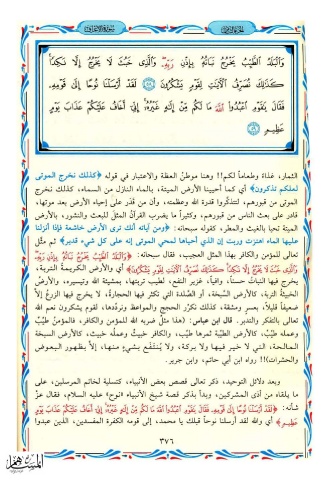 الجزء الثامن
سورة الأعراف
وَالْبَلَدُ الطَّيِّبُ يَخْرُجُ نَبَاتُهُ بِإِذْنِ رَبِّهِ وَالَّذِي خَبُثَ لَا يَخْرُجُ إِلَّا نَكِدًا
كَذَلِكَ نُصَرِّفُ الْآيَاتِ لِقَوْمٍ يَشْكُرُونَ ﴿٥٨﴾ لَقَدْ أَرْسَلْنَا نُوحًا إِلَى قَوْمِهِ
فَقَالَ يَاقَوْمِ اعْبُدُوا اللَّهَ مَا لَكُمْ مِنْ إِلَهٍ غَيْرُهُ إِنِّي أَخَافُ عَلَيْكُمْ عَذَابَ يَوْمٍ
عَظِيمٍ ﴿٥٩﴾
الثمار، غذاءً وطعاماً لكم!! وهنا موطن العظة والاعتبار في قوله ﴿كذلك نخرج الموتى
لعلكم تذكرون﴾ أي كما أحيينا الأرض الميتة، بالماء النازل من السماء، كذلك نخرج
الموتى من قبورهم، لتتذكروا قدرة الله وعظمته، وأن من قَدَر على إحياء الأرض بعد موتها،
قادر على بعث الناس من قبورهم، وكثيراً ما يضرب القرآنُ المثل للبعث والنشور، بالأرض
الميتة تحيا بالغيث والمطر، كقوله سبحانه: ﴿ومن آياته أنك ترى الأرض خاشعة فإذا أنزلنا
عليها الماء اهتزت وربت إن الذي أحياها لمحي الموتى إنه على كل شيء قدير﴾ ثم مثَّل
تعالى للمؤمن والكافر بهذا المثل العجيب، فقال سبحانه: ﴿وَالْبَلَدُ الطَّيِّبُ يَخْرُجُ نَبَاتُهُ بِإِذْنِ رَبِّهِ
وَالَّذِي خَبُثَ لَا يَخْرُجُ إِلَّا نَكِدًا كَذَلِكَ نُصَرِّفُ الْآيَاتِ لِقَوْمٍ يَشْكُرُونَ﴾ أي والأرض الكريمة التربة،
يخرج فيها النبات حسناً، وافياً، غزير النفع، لطيب تربتها، بمشيئة الله وتيسيره، والأرض
الخبيثة التربة، كالأرض السَّبخة، أو الصَّلدة التي تكثر فيها الحجارة، لا يخرج فيها الزرع إلاَّ
ضعيفاً قليلاً، بعسر ومشقة، كذلك نكرِّر الحجج والمواعظ ونردِّدها، لقوم يشكرون نعم الله
تعالى بالتفكر والتدبر. قال ابن عباس: (هذا مثل ضربه الله للمؤمن والكافر، فالمؤمن طيِّبٌ
وعمله طيِّب، كالأرض الطيِّبة ثمرها طيِّب، والكافر خبيثٌ وعمله خبيث، كالأرض السبخة
المالحة، التي لا خير فيها ولا بركة، ولا يُنتفع بشيء منها، إلاَّ بظهور البعوض
والحشرات)!! رواه ابن أبي حاتم، وابن جرير.
وبعد دلائل التوحيد، ذكر تعالى قصص بعض الأنبياء، كتسلية لخاتم المرسلين، على
ما يلقاه من أذى المشركين، وبدأ بذكر قصة شيخ الأنبياء «نوح» عليه السلام، فقال عزَّ
شأنه: ﴿لَقَدْ أَرْسَلْنَا نُوحًا إِلَى قَوْمِهِ فَقَالَ يَاقَوْمِ اعْبُدُوا اللَّهَ مَا لَكُمْ مِنْ إِلَهٍ غَيْرُهُ إِنِّي أَخَافُ عَلَيْكُمْ عَذَابَ يَوْمٍ
عَظِيمٍ﴾ أي والله لقد أرسلنا نوحاً قبلك يا محمد، إلى قومه الكفرة المفسدين، الذين عبدوا
٣٧٦